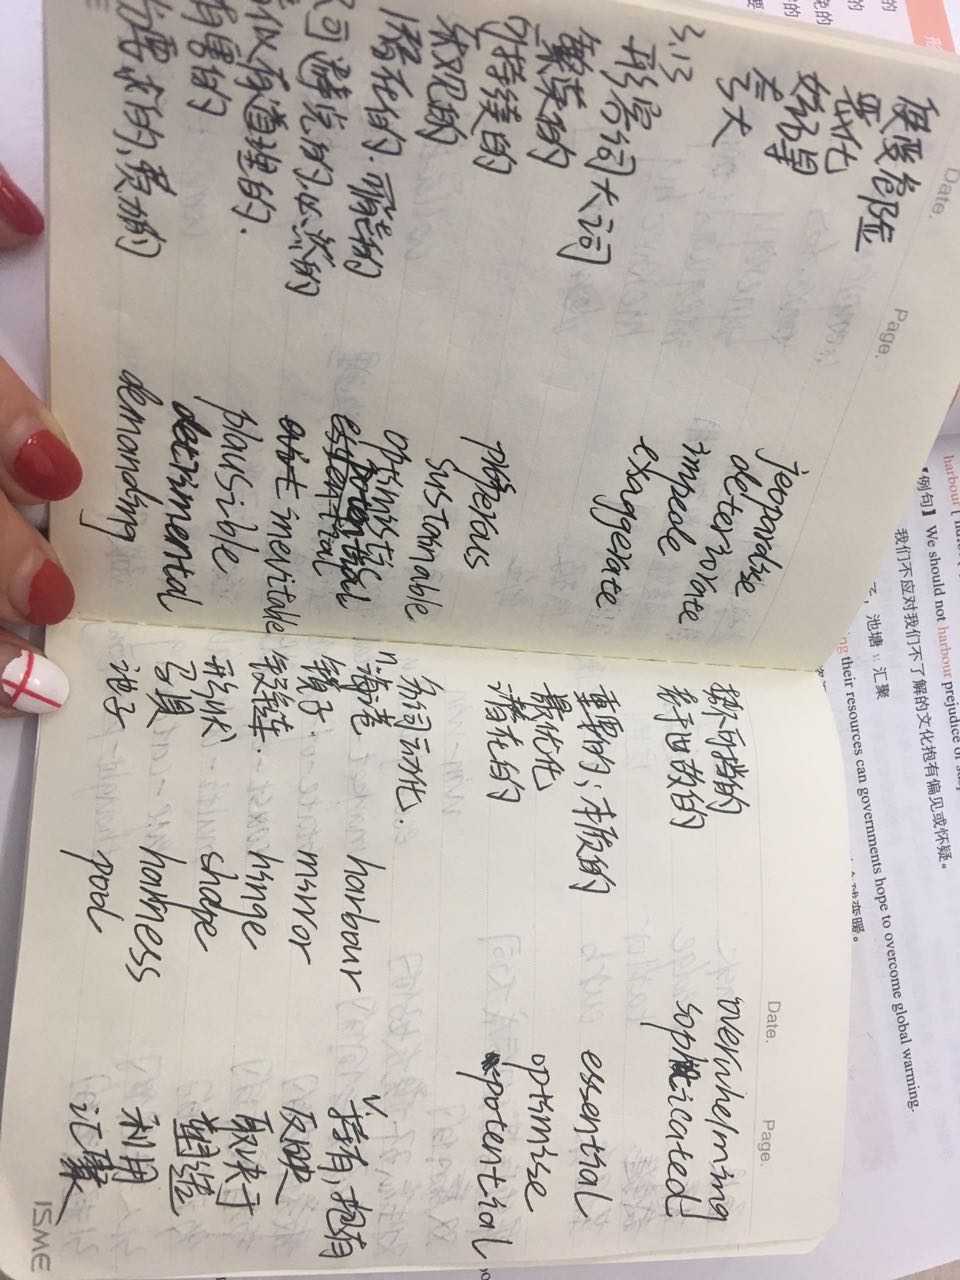 Date. Page.
使受危险 jeopardise
恶化 deteriorate
妨碍 impede
夸大 exaggerate
3.13
形容词大词
繁荣的 properous
可持续的 sustainable
乐观的 optimistic
潜在的.
可避免的.必然的 inevitable
似有道理的. plausible
有害的 detrimental
要求的,费力的 demanding
Date. Page.
不可挡的 overwhelming
于世故的 sophisticated
重要的；本质的 essential
最优化 optimise
潜在的 potential
名词动化.
n. 海港 harbour v. 持有,抱有
镜子. mirror 反映
铰链. hinge 取决于
形状 shape 塑造
马具 harness 利用
池子 pool 汇聚
ISME
harbour
【例句】We should not harbour prejudice or
我们不应对我们不了解的文化抱有偏见或怀疑。
池塘 汇聚
their resources can governments hope to overcome global warming.
变暖。